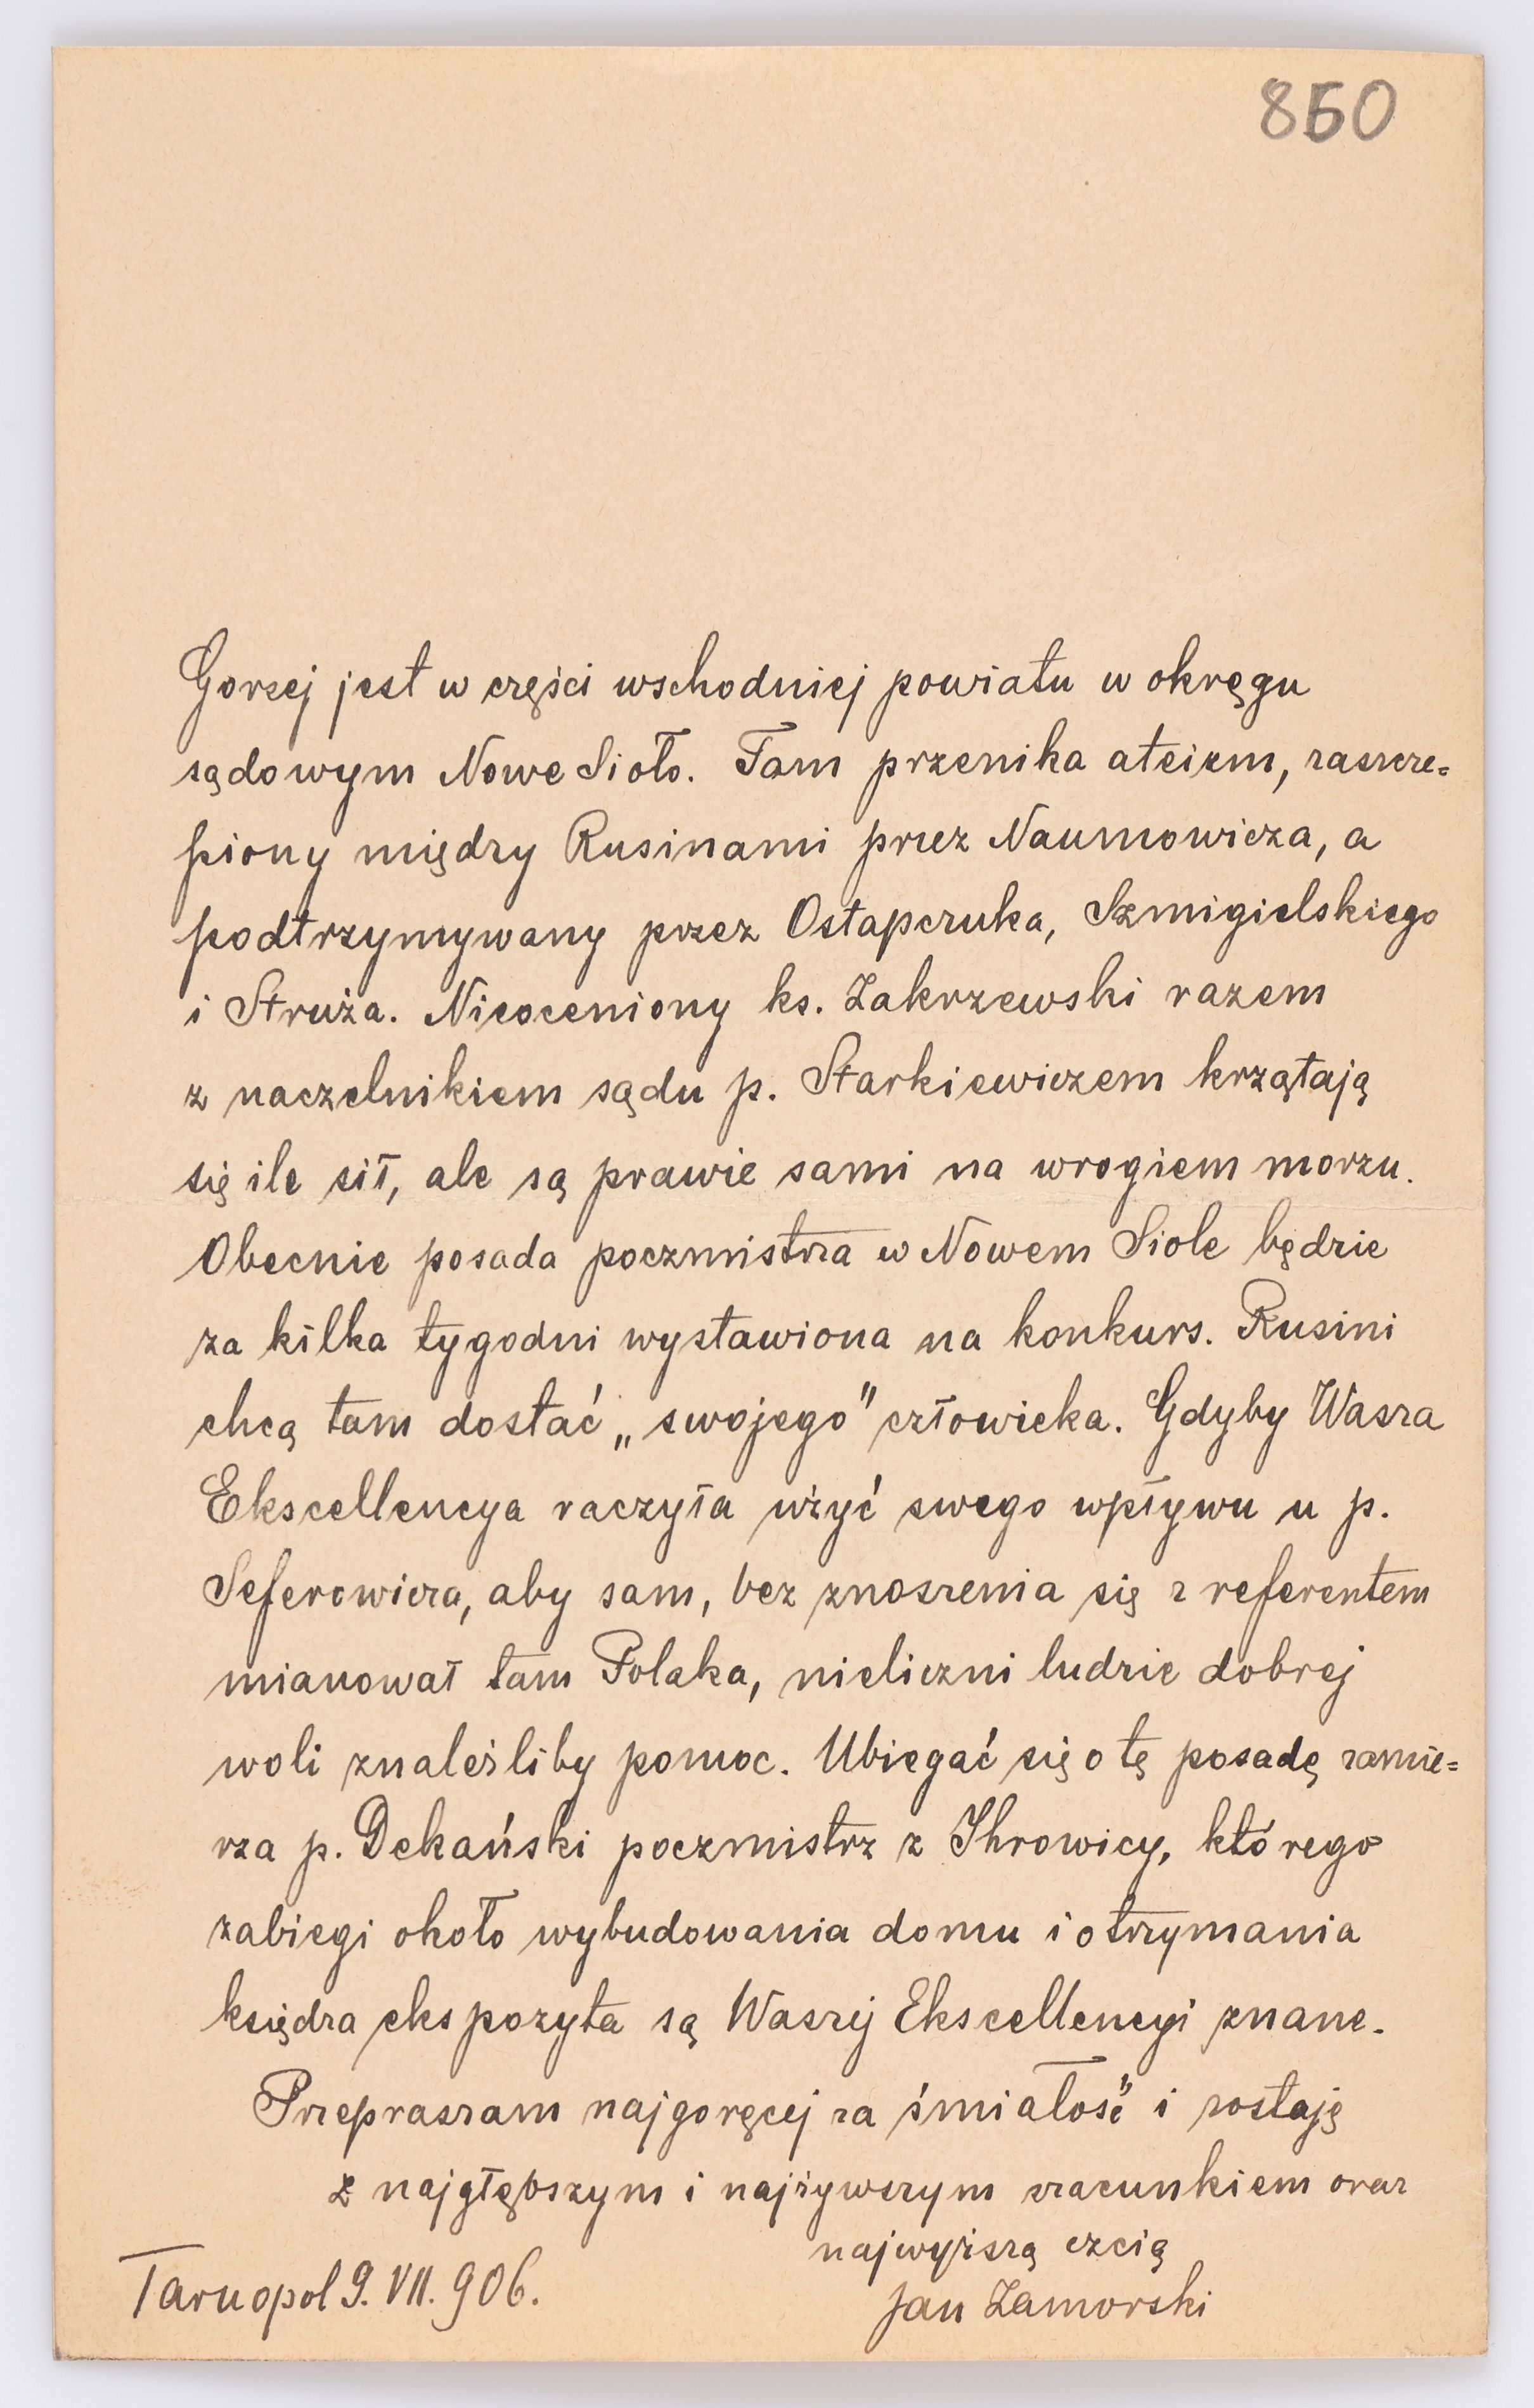 860
Gorzej jest w części wschodniej powiatu w okręgu
sądowym Nowe Sioło. Tam przenika ateizm, zaszcze=
piony między Rusinami przez Naumowicza, a
podtrzymywany przez Ostapczuka, Szmigielskiego
i Struża. Nieoceniony ks. Zakrzewski razem
z naczelnikiem sądu p. Starkiewiczem krzątają
się ile sił, ale są prawie sami na wrogiem morzu.
Obecnie posada poczmistrza w Nowem Siole będzie
za kilka tygodni wystawiona na konkurs. Rusini
chcą tam dostać „swojego" człowieka. Gdyby Wasza
Ekscellencya raczyła użyć swego wpływu u p.
Seferowicza, aby sam, bez znoszenia się z referentem
mianował tam Polaka, nieliczni ludzie dobrej
woli znaleźliby pomoc. Ubiegać się o tę posadę zamie=
rza p. Dekański poczmistrz z Ihrowicy, którego
zabiegi około wybudowania domu i otrzymania
księdza ekspozyta są Waszej Ekscellencyi znane.
Przepraszam najgoręcej za śmiałość i zostaję
z najgłębszym i najżywszym szacunkiem oraz
najwyższą czcią
Jan Zamorski
Tarnopol 9. VII. 906.